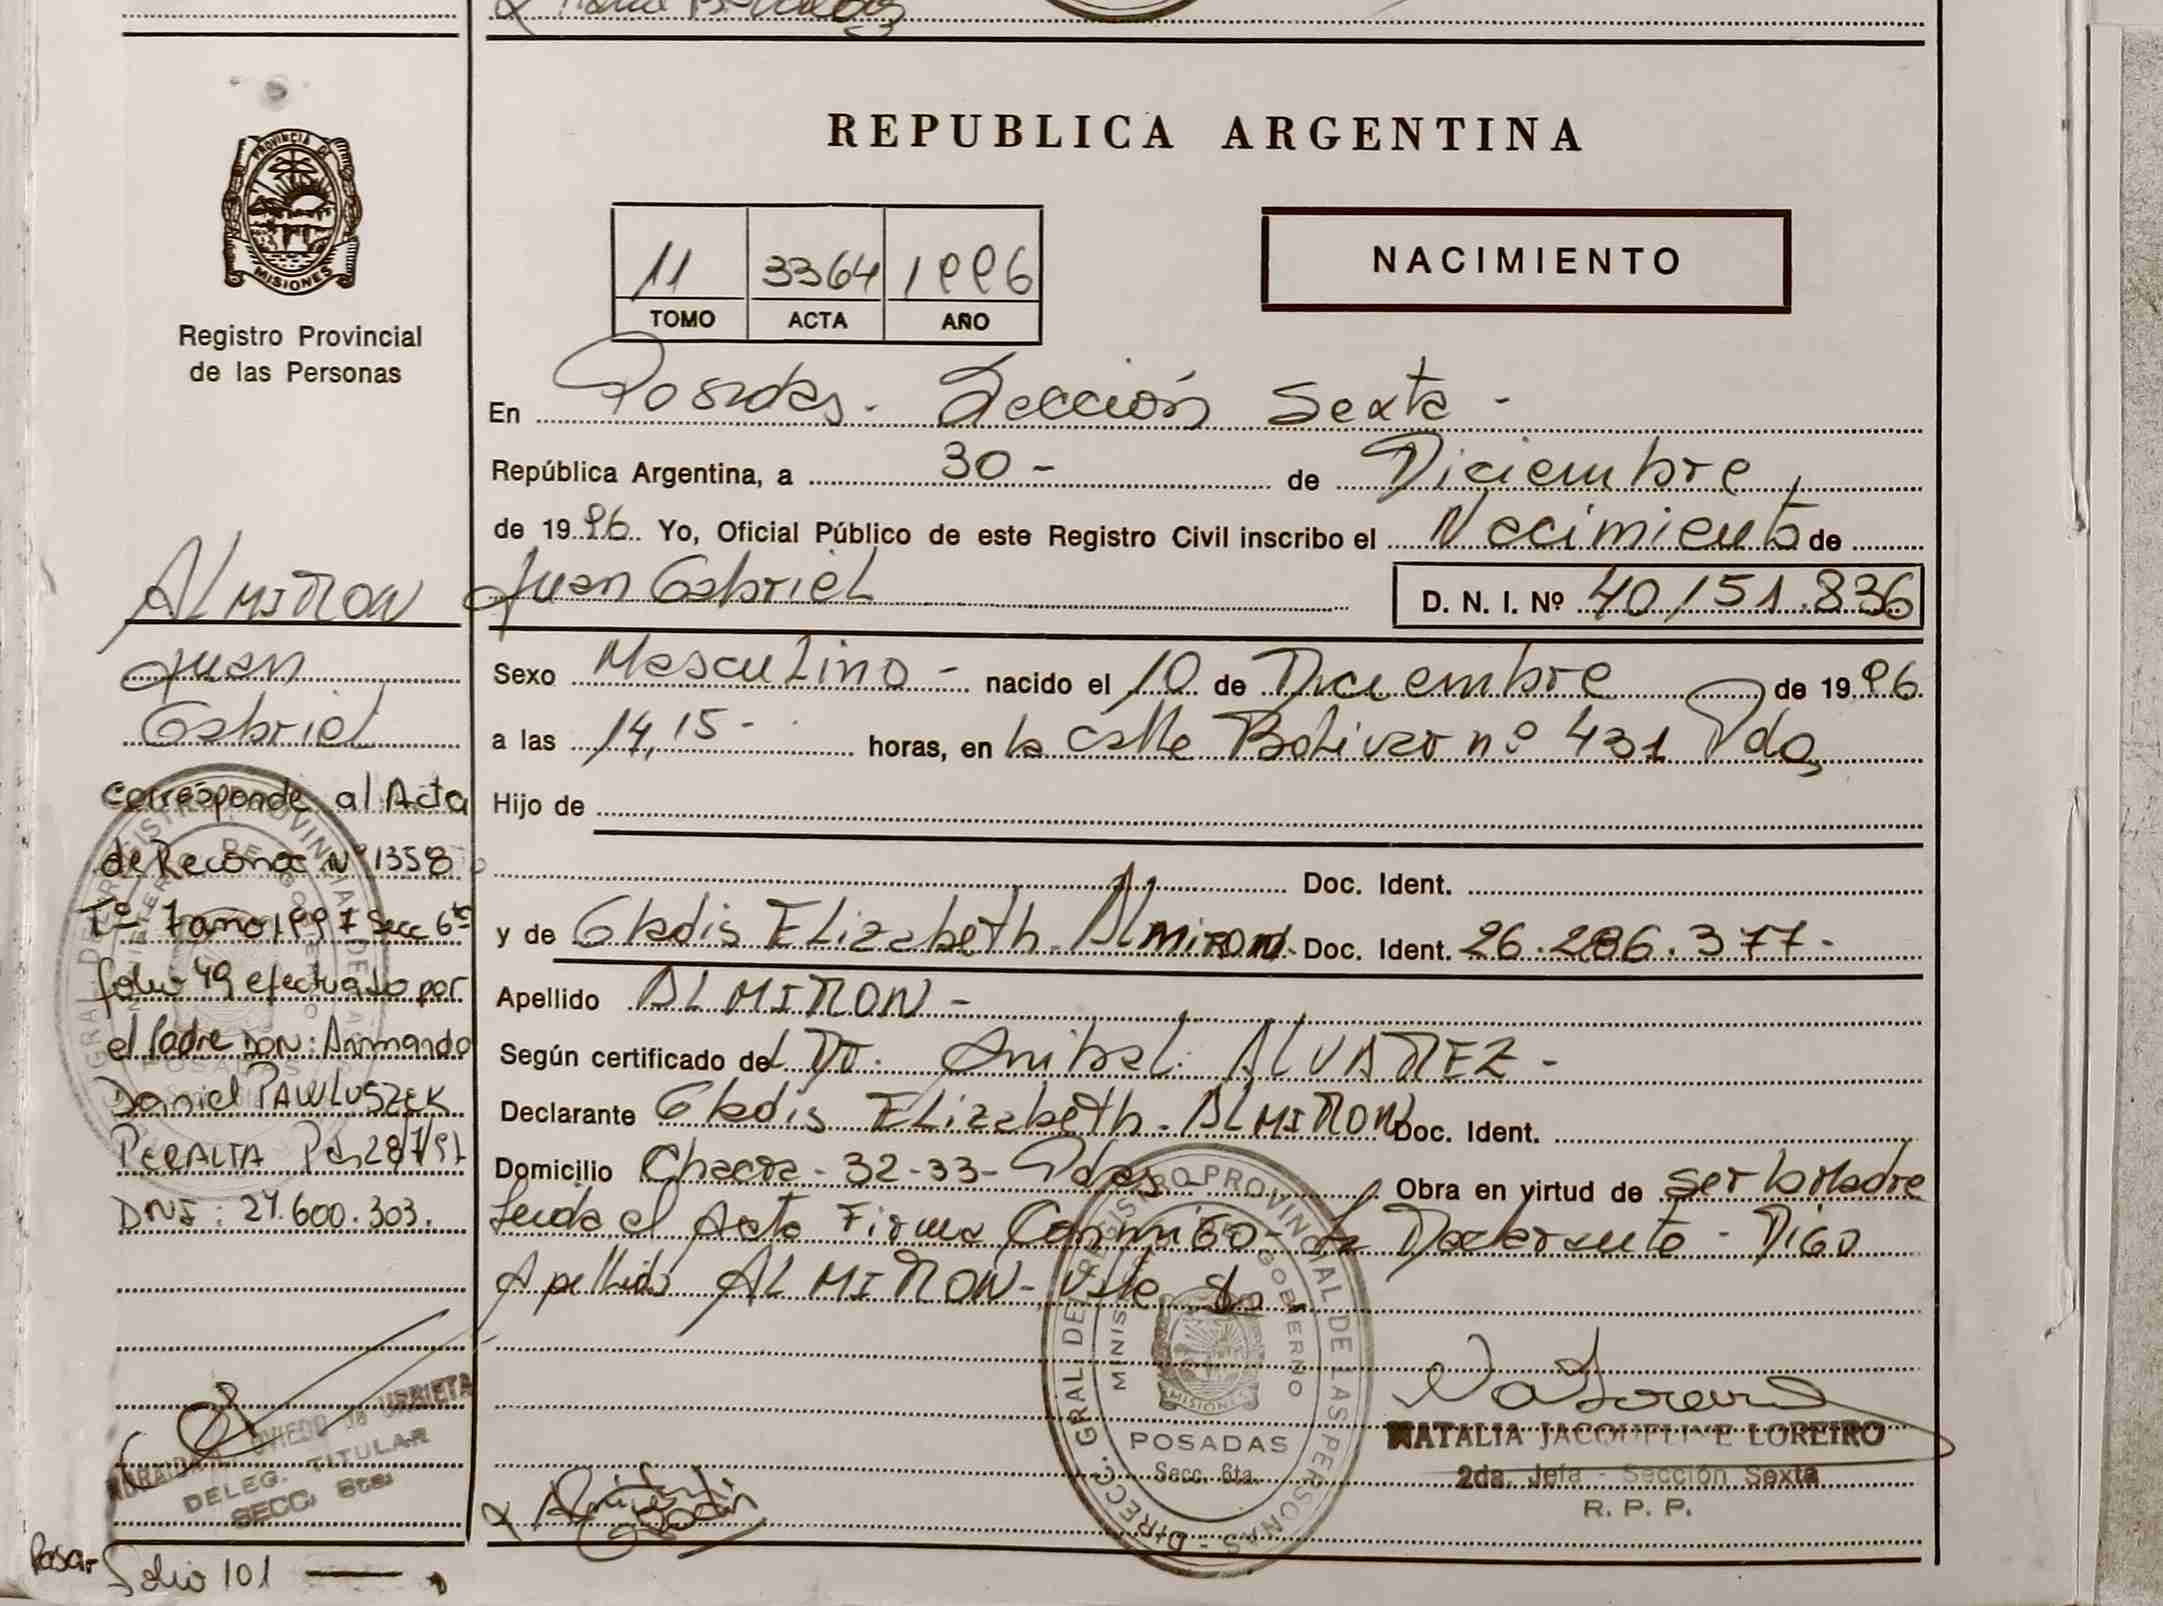 REPUBLICA ARGENTINA
PROVINCIA DE
MISIONES
Registro Provincial
de las Personas
11 3364 1996
TOMO ACTA AÑO
NACIMIENTO
En Posadas - Sección Sexta -
República Argentina, a 30 - de Diciembre
de 1996 Yo, Oficial Público de este Registro Civil inscribo el Nacimiento de
Juan Gabriel D. N. I. Nº 40/151.836
Sexo Masculino - nacido el 10 de Diciembre de 1996
a las 14,15 - horas, en la calle Bolivar nº 431 Pdas
Hijo de
Doc. Ident.
y de Gladis Elizabeth Almiron Doc. Ident. 26.286.377 -
Apellido ALMIRON -
Según certificado del Dr. Anibal ALVAREZ -
Declarante Gladis Elizabeth ALMIRON Doc. Ident.
Domicilio Chacra - 32-33 - Pdas Obra en virtud de ser la Madre
Leida el Acta Firma Conmigo - La Declarante - Digo
Apellido ALMIRON - Vale
ALMIRON
Juan
Gabriel
corresponde al Acta
de Reconoc Nº 1358
Tº 7 año 1997 Secc 6ta
folio 49 efectuado por
el Padre DON: Armando
Daniel PAWLUSZEK
PERALTA Pdas 28/7/97
DNI: 27.600.303.
OVIEDO de URRIETA
DELEG. TITULAR
SECC. 6ta.
DIRECC. GRAL DE REGISTRO PROVINCIAL DE LAS PERSONAS
MINIS DE GOBIERNO
MISIONES
POSADAS
Secc. 6ta.
NATALIA JACQUELINE LOREIRO
2da. Jefa - Sección Sexta
R. P. P.
Pasa - Folio 101